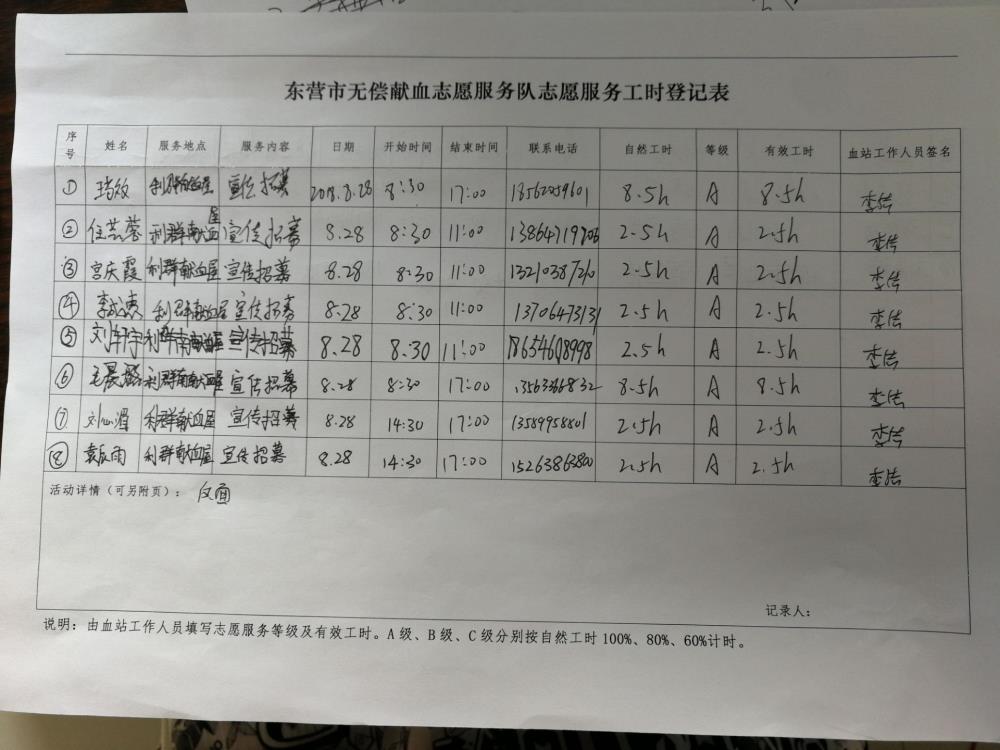 东营市无偿献血志愿服务队志愿服务工时登记表
序号 姓名 服务地点 服务内容 日期 开始时间 结束时间 联系电话 自然工时 等级 有效工时 血站工作人员签名
① 利群献血屋 宣传招募 2018.8.28 8:30 17:00 18562059601 8.5h A 8.5h 李洁
② 任芸蓉 利群献血屋 宣传招募 8.28 8:30 11:00 2.5h A 2.5h 李洁
③ 宫庆霞 利群献血屋 宣传招募 8.28 8:30 11:00 13210387210 2.5h A 2.5h 李洁
④ 利群献血屋 宣传招募 8.28 8:30 11:00 13706473131 2.5h A 2.5h 李洁
⑤ 刘轩宇 利群献血屋 宣传招募 8.28 8:30 11:00 18654608998 2.5h A 2.5h 李洁
⑥ 利群献血屋 宣传招募 8.28 8:30 17:00 13563366832 8.5h A 8.5h 李洁
⑦ 利群献血屋 宣传招募 8.28 14:30 17:00 13589958801 2.5h A 2.5h 李洁
⑧ 袁振雨 利群献血屋 宣传招募 8.28 14:30 17:00 15263863800 2.5h A 2.5h 李洁
活动详情（可另附页）： 反面
记录人：
说明：由血站工作人员填写志愿服务等级及有效工时。A级、B级、C级分别按自然工时100%、80%、60%计时。